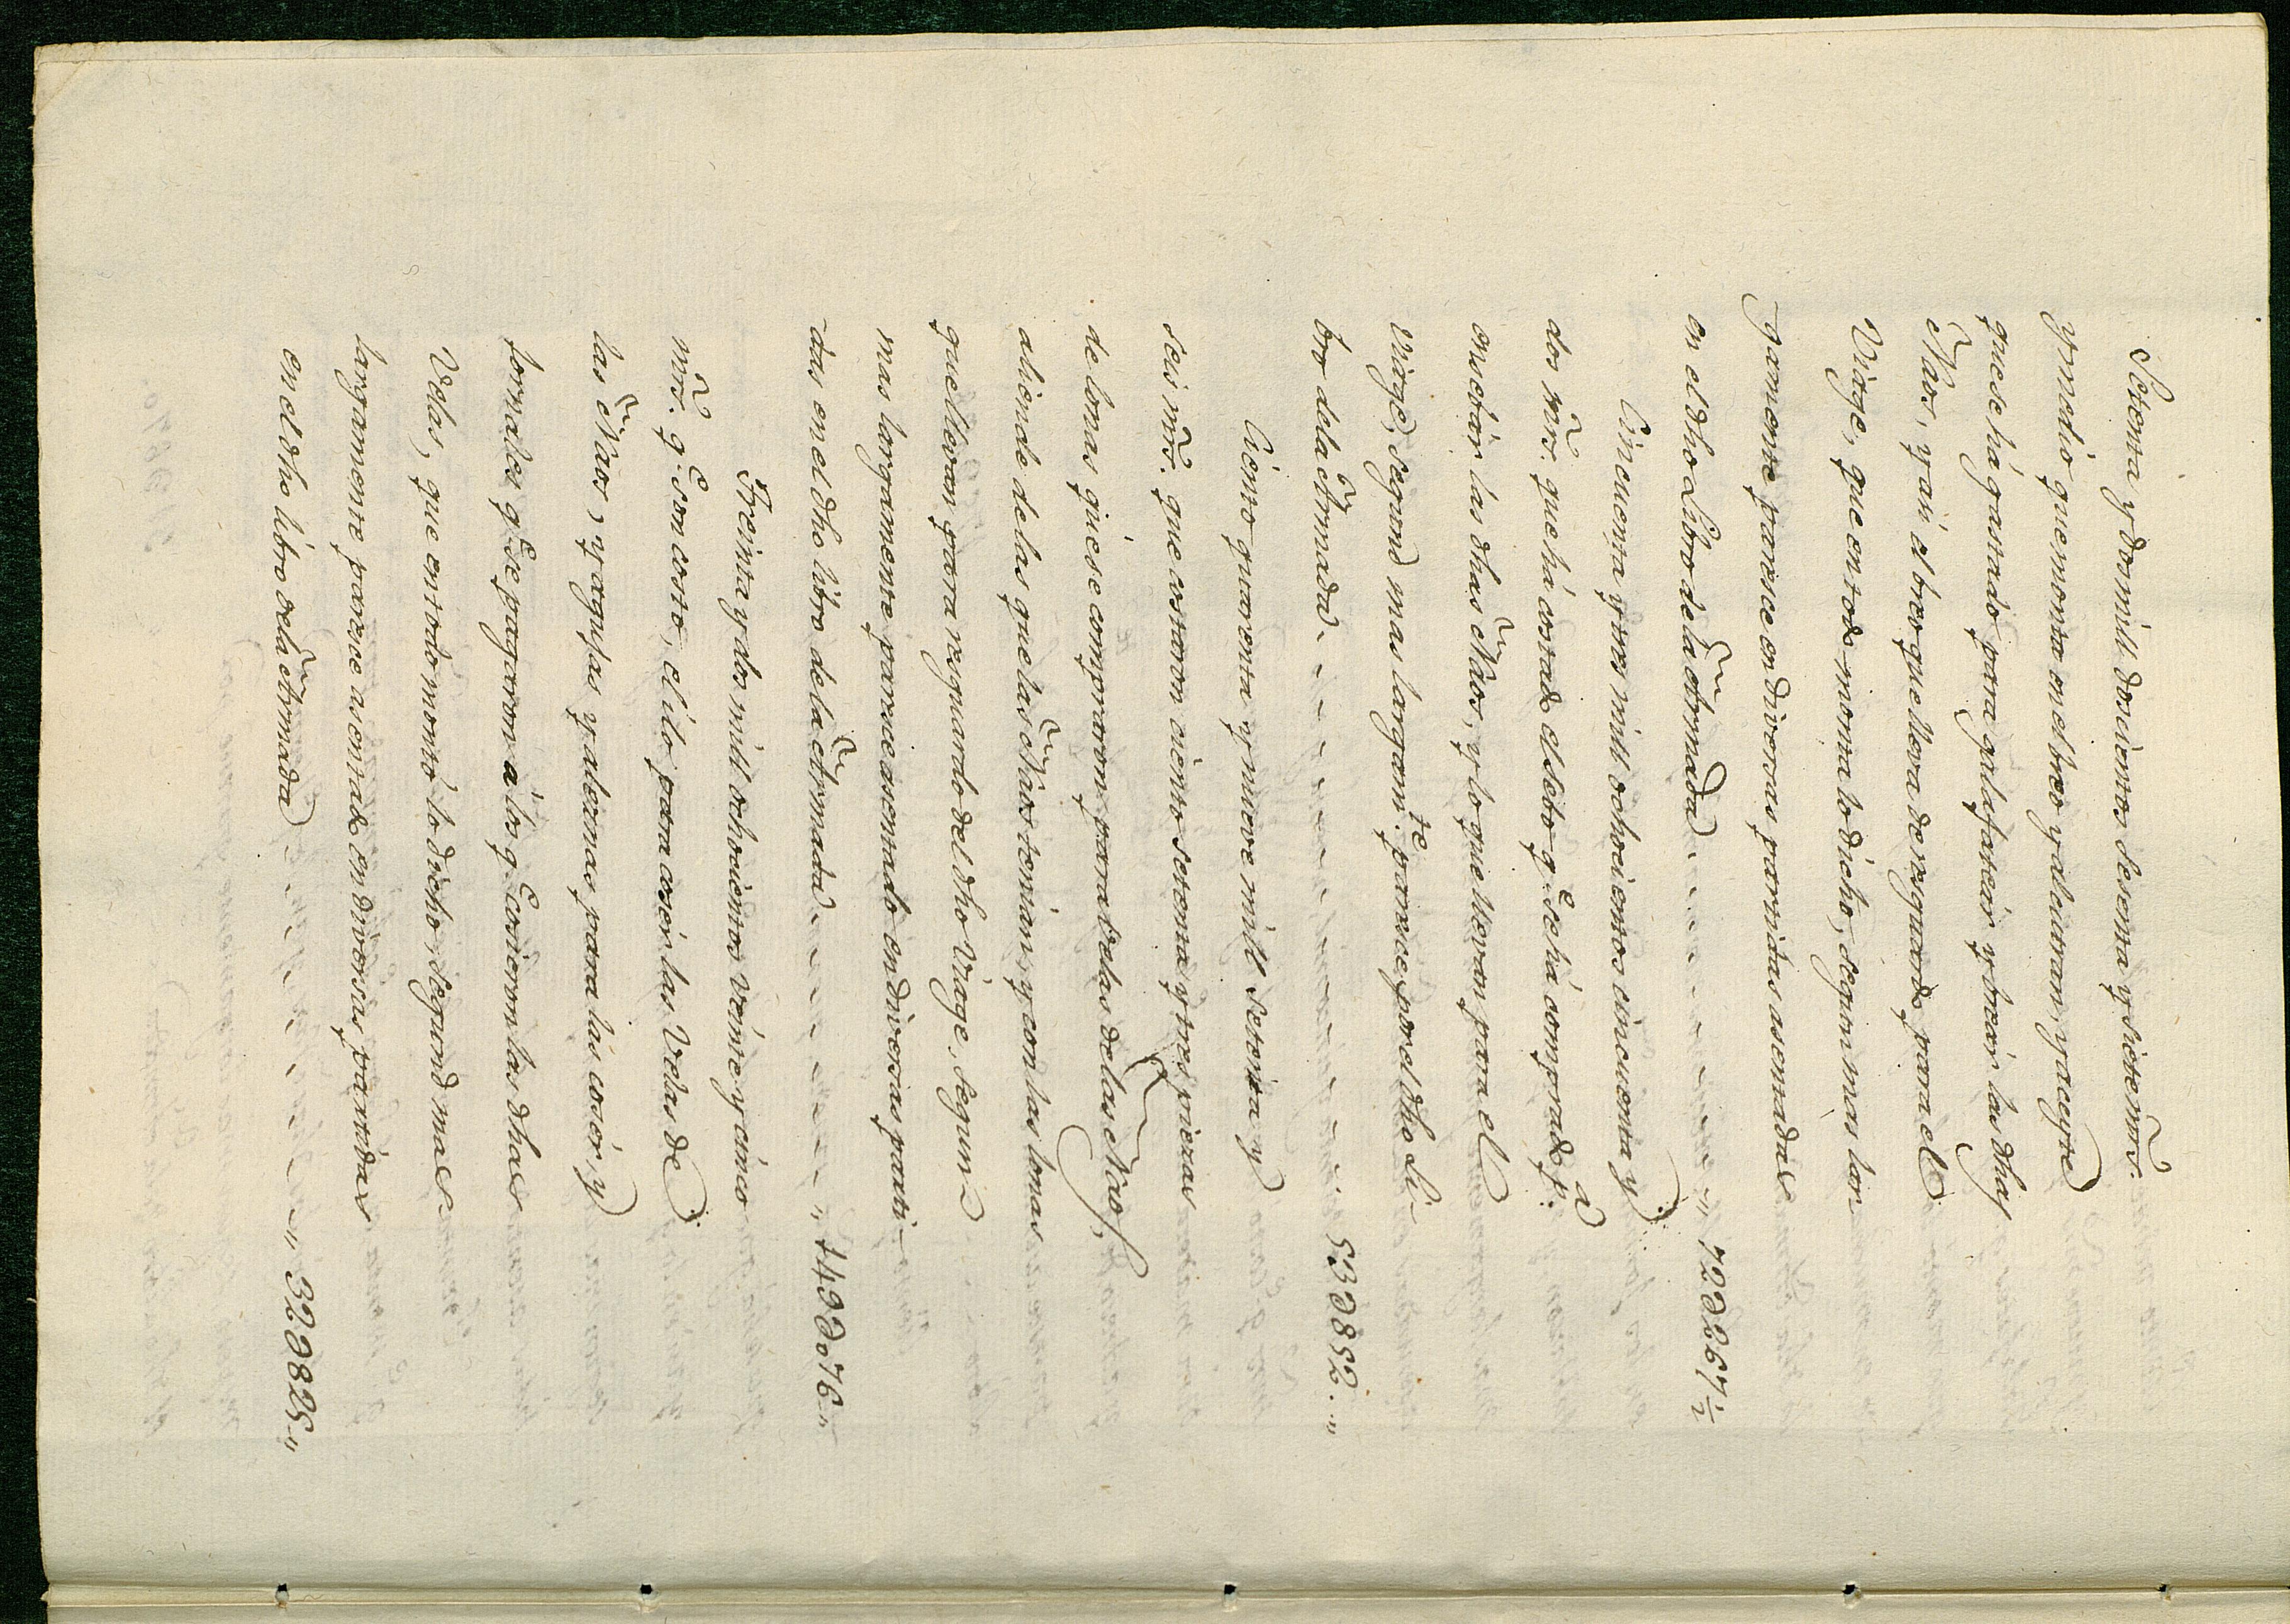 Setenta y dos mill doscientos sesenta y siete mrs.
y medio que monta en el breo y alcitran, y aceyte
que se há gastado para galafatear y brear las dhas
Naos, y asi el breo que lleva de resguardo para el
Viage, que en todo monta lo dicho, segun mas lar
gamente paresce en diversas partidas asentadas
en el dho Libro de la Armada - - - - - - - - " 72Ꝺ267½
Cincuenta y tres mill ochocientos cincuenta y
dos mrs. que há costado el sebo q.e se há comprado p.a
ensebár las dhas Naos, y lo que llevan para el
viage, segund mas largam.te paresce por el dho Li-
bro de la Armada - - - - - - - - - - - 53Ꝺ852. "
Ciento quarenta y nueve mill setenta y
seis mrs. que costaron ciento setenta y tres piezas
de lonas que se compraron para velas de las Naos,
aliende de las que las Naos tenian, y con las lonas
que llevan para resguardo del dho Viage, segund
mas largamente paresce asentado en diversas parti-
das en el dho libro de la Armada - - - - - - - " 149Ꝺ076 "
Treinta y dos mill ochocientos veinte y cinco
mrs. q.e son costo, el ilo para cosér las velas de
las Naos, y agujas y aleznas para las cosér, y
jornales q.e se pagaron á los q.e cosieron las dhas
Velas, que en todo montó lo dicho, segund mas
largamente paresce asentado en diversas partidas
en el dho libro de la Armada - - - - - - - " 32Ꝺ825 "